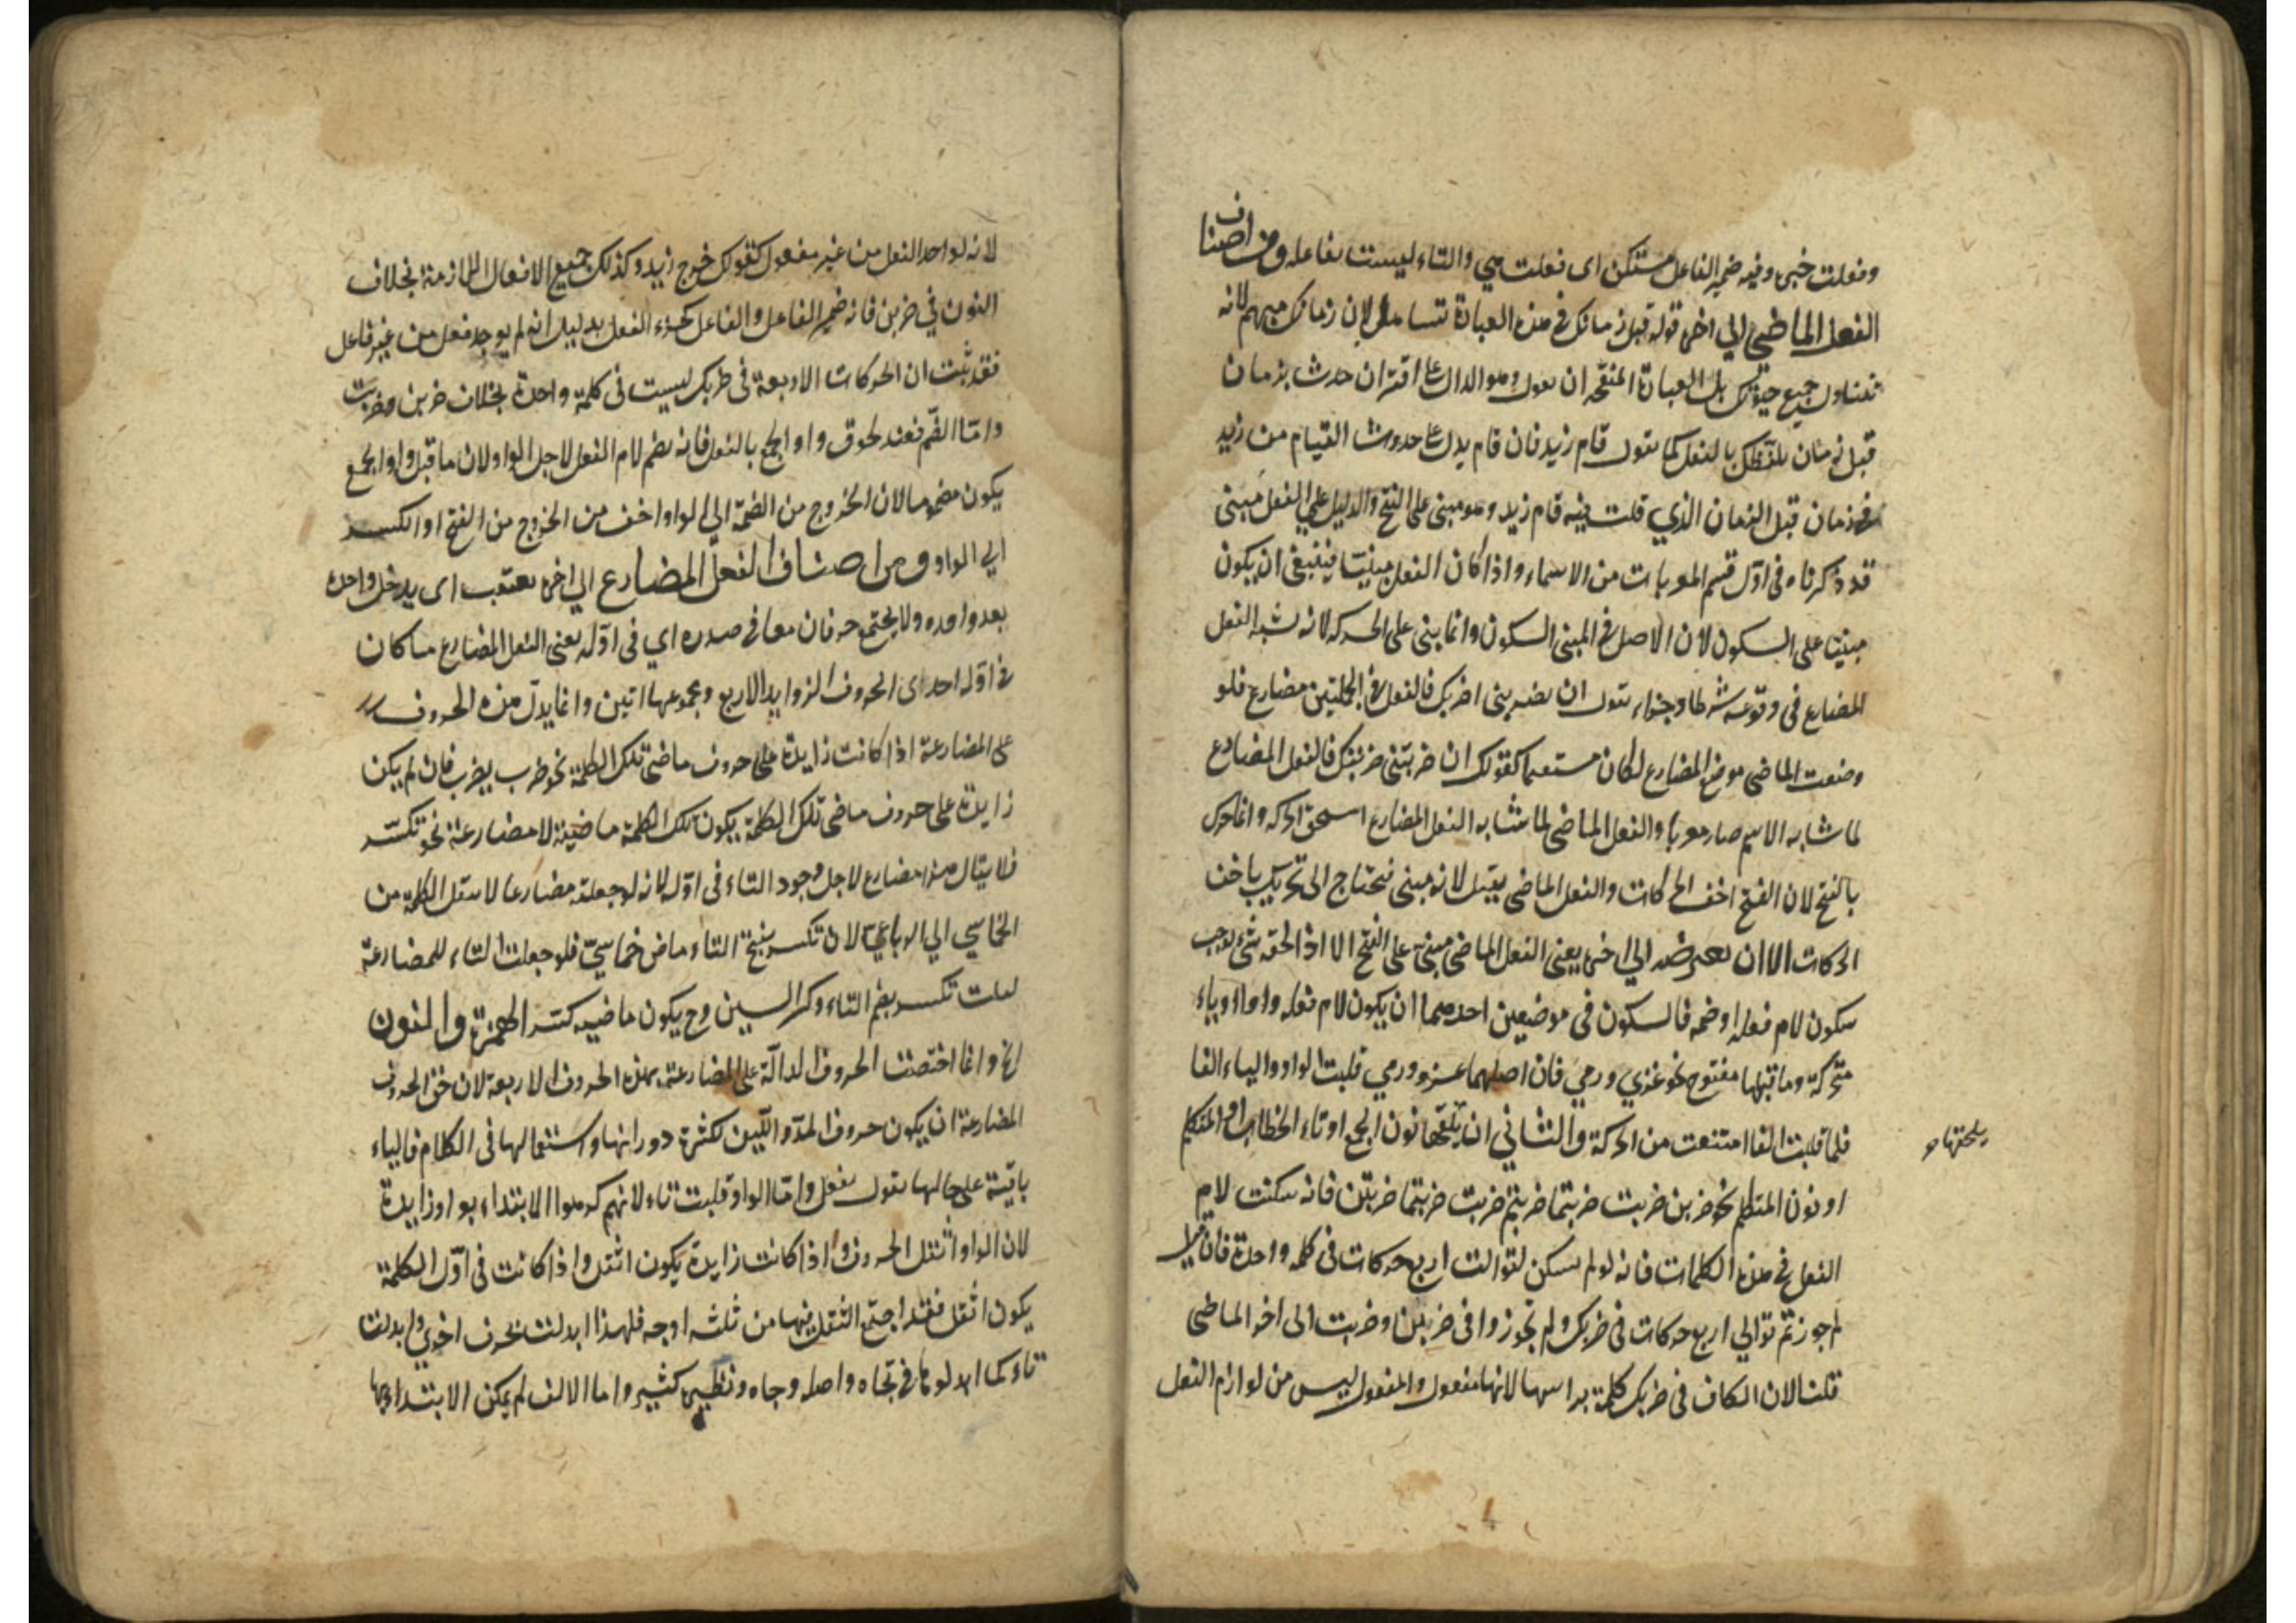 وفعلت خبره وفيه ضمير الفاعل مستكن اى فعلت هي والتاء ليست بفاعله ومن اصناف
الفعل الماضي الي اخره قوله قبل زمانك في هذه العبارة تساهل لان زمانك مبهم لانه
تتناول جميع حيوتك بل العبارة المنقحه ان يقول وهو الدال على اقتران حدث بزمان
قبل زمان تلفظك بالفعل كما تقول قام زيد فان قام يدل على حدوث القيام من زيد
في زمان قبل الزمان الذي قلت فيه قام زيد وهو مبنى على الفتح والدليل على الفعل مبنى
قد ذكرناه فى اول قسم المعربات من الاسماء واذا كان الفعل مبنيّا فينبغى ان يكون
مبنيّا على السكون لان الاصل في المبنى السكون وانما بنى على الحركه لانه شبه الفعل
المضارع فى وقوعه شرطا وجزاء تقول ان تضربنى اضربك فالفعل في الجملتين مضارع فلو
وضعت الماضى موضع المضارع لكان مستقيما كقولك ان ضربتنى ضربتك فالفعل المضارع
لما شابه الاسم صار معربا والفعل الماضى لما شابه الفعل المضارع استحق الحركه وانما حرك
بالفتح لان الفتح اخف الحركات والفعل الماضى ثقيل لانه مبنى فتحتاج الى تحريكه باخف
الحركات الا ان يعرضه الي اخره يعنى الفعل الماضى مبنى على الفتح الا اذا لحقه شئ يوجب
سكون لام فعله او ضمه فالسكون فى موضعين احدهما ان يكون لام فعله واوا او ياء
متحركة وما قبلها مفتوح نحو غزى ورمى فان اصلهما غزو ورمي قلبت الواو والياء الفا
فلما قلبت الفا امتنعت من الحركة والثاني ان يلحقها نون الجمع او تاء الخطاب او المتكلم
يلحقها
او نون المتكلم نحو ضربن ضربت ضربتما ضربتم ضربت ضربتما ضربتن فانه سكنت لام
الفعل في هذه الكلمات فانه لو لم يسكن لتوالت اربع حركات فى كلمه واحدة فان قيل
لم جوزتم توالي اربع حركات فى ضربك ولم تجوزوا فى ضربن وضربت الى اخر الماضى
قلنا لان الكاف فى ضربك كلمة براسها لانها مفعول والمفعول ليس من لوازم الفعل
لانه لو احد الفعل من غير مفعول كقولك خرج زيد وكذلك جميع الافعال اللازمة بخلاف
النون في ضربن فانه ضمير الفاعل والفاعل كجزء الفعل بدليل انه لم يوجد فعل من غير فاعل
فقد ثبت ان الحركات الاربعة فى ضربك ليست فى كلمة واحدة بخلاف ضربن وضربت
وامّا الضّم فعند لحوق واو الجمع بالفعل فانه يضم لام الفعل لاجل الواو لان ما قبل واو الجمع
يكون مضموما لان الخروج من الضمة الي الواو اخف من الخروج من الفتح او الكسر
الي الواو ومن اصناف الفعل المضارع الي اخره يعتقب اى يدخل واحده
بعد واحده ولا يجتمع حرفان معا في صدره اي فى اوله يعنى الفعل المضارع ما كان
في اوّله احدى الحروف الزوايد الاربع ومجموعها اتين وانما يدلّ هذه الحروف
على المضارعة اذا كانت زايدة على حروف ماضى تلك الكلمة نحو ضرب يضرب فان لم يكن
زايدة على حروف ماضى تلك الكلمة يكون تلك الكلمة ماضية لا مضارعة نحو تكسّر
فلا يقال هذا مضارع لاجل وجود التاء فى اوّله لانه لو جعلته مضارعا لانتقل الكلمة من
الخماسي الي الرباعيّ لان تكسر بفتح التاء ماض خماسيّ فلو جعلت التاء للمضارعة
لقلت تكسر بضم التاء وكسر السين وح يكون ماضيه كسر الهمزة والنون
الخ وانما اختصت الحروف الدالّة على المضارعة بهذه الحروف الاربعة لان حق الحروف
المضارعة ان يكون حروف المدّ واللّين لكثرة دورانها واستعمالها فى الكلام فالياء
باقية على حالها تقول يفعل وامّا الواو قلبت تاء لانهم كرهوا الابتداء بواو زايدة
لان الواو اثقل الحروف واذا كانت زايدة يكون اثقل واذا كانت فى اوّل الكلمة
يكون اثقل فقد اجتمع الثقل فيها من ثلثه اوجه فلهذا ابدلت بحرف اخرى وابدلت
تاء كما ابدلوها في تجاه واصله وجاه ونظيره كثير واما الالف لم يمكن الابتداء بها